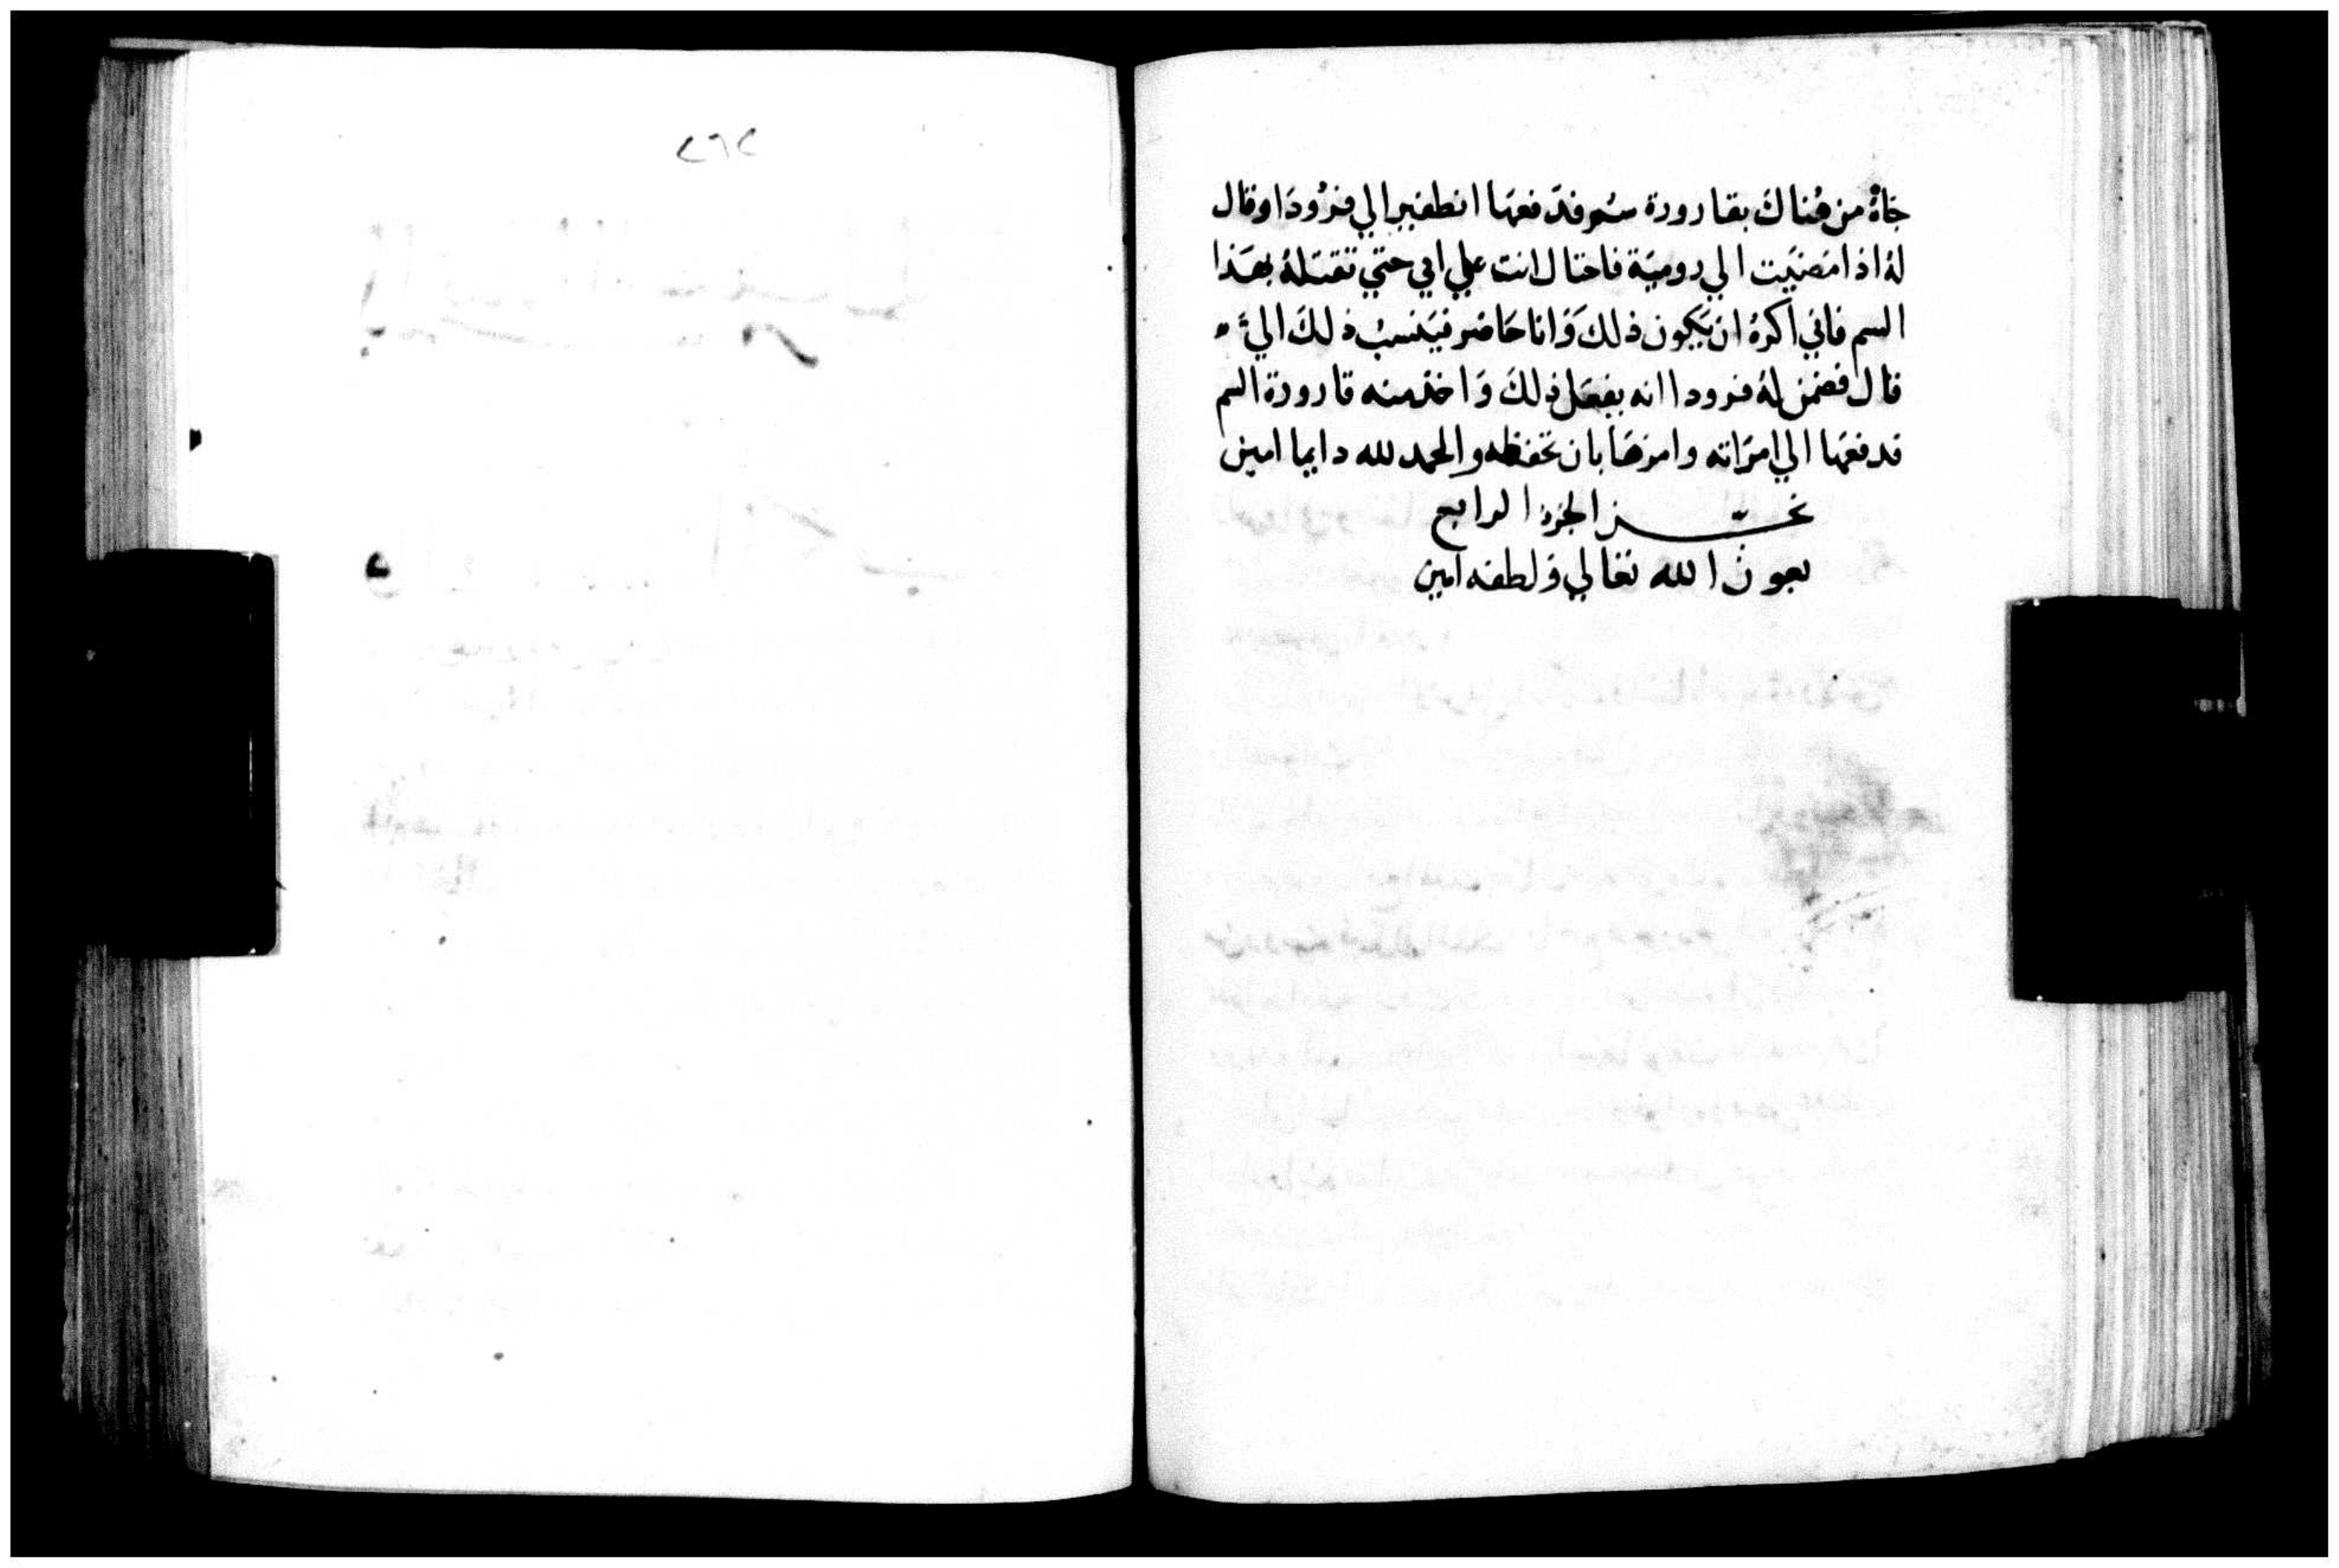 جاه من هناك بقارورة سم فدفعها انطفير الي فرودا وقال
له اذا مضيت الي رومية فاحتال انت علي ابي حتي تقتله بهذا
السم فاني اكره ان يكون ذلك وانا حاضر فينسب ذلك الي
قال فضمن له فرودا انه يفعل ذلك واخذ منه قارورة السم
فدفعها الي امراته وامرها بان تحفظه والحمد لله دايما امين
الجزء الرابع
بعون الله تعالي ولطفه امين